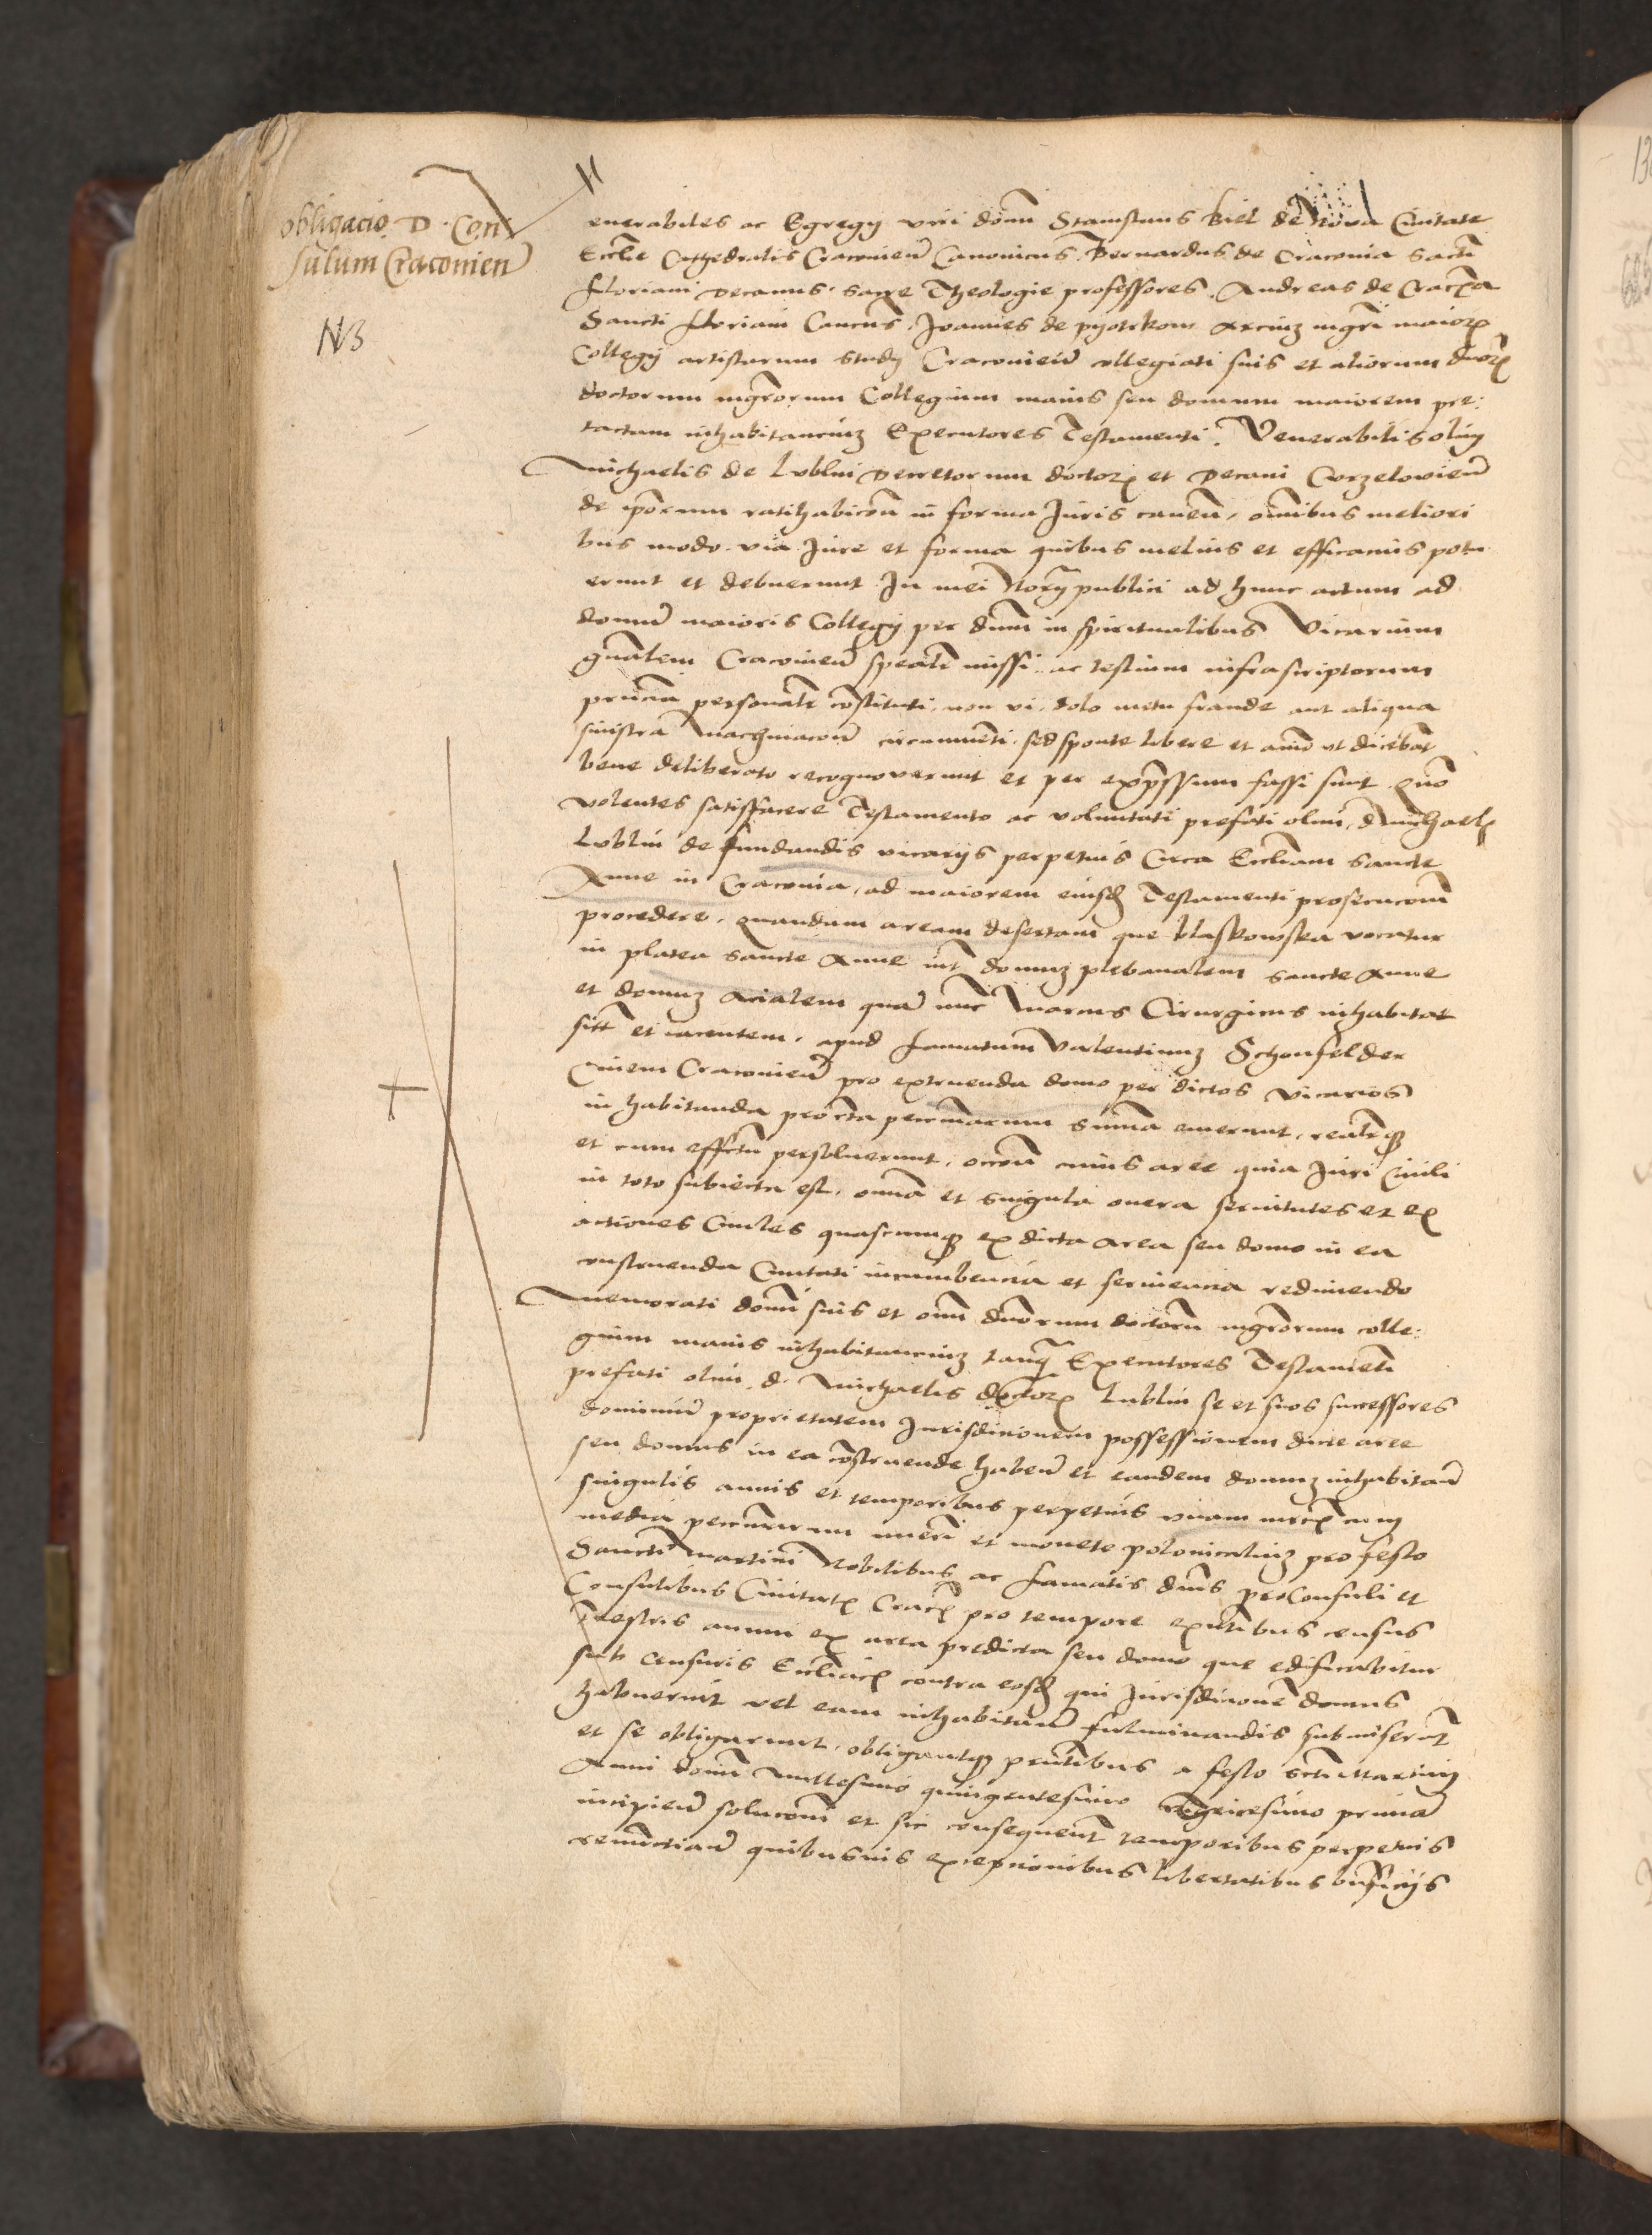 obligacio D. Con
sulum Cracovien
NB
enerabiles ac Egregii viri domi Stanislaus Biel de Nova Civitate
Eccle Cathedralis Cracovien Canonicus, Bernardus de Cracovia Sacti
Floriani Decanus, sacre Theologie professores, Andreas de Cracovia
Sancti Floriani Canonicus, Joannes de pyotrkow arcium mgri maioris
Collegij artistarum studij Cracovien collegiati suis et aliorum dnorum
doctorum mgrorum Collegium maius seu domum maiorem pre
tactam inhabitancium Executores Testamenti Venerabilis olim
Michaelis de Lublin Decretorum doctoris et Decani Curzelovien
de ipsorum ratihabicone in forma Juris caven, omnibus meliori
bus modo via Jure et forma quibus melius et efficacius potu
erunt et debuerunt In mei Norij publici ad hunc actum ad
domum maioris Collegij per dnum in spiritualibus Vicarium
gnalem Cracovien spealr missi ac testium infrascriptorum
pncia personalr constituti, non vi, dolo metu fraude aut aliqua
sinistra machinacone circumventi, sed sponte libere et animo ut dicebat
bene deliberato recognoverunt et per expressum fassi sunt quo
volentes satisfacere Testamento ac voluntati prefati olim d Michaelis
Lublin de fundandis vicarijs perpetuis Circa Eccliam sancte
Anne in Cracovia, ad maiorem eiusdem Testamenti prosecuconem
procedere, quandam aream desertam que blaskowska vocatur
in platea sancte Anne int domum plebanalem sancte Anne
et domum acialem quam nunc Marcus Cirurgicus inhabitat
sitt et iacentem, apud famatum Valentinum Schonfelder
Civem Cracovien pro extruenda domo per dictos vicarios
in habitanda pro certa pecuniarum summa emerunt, realrque
et cum effectu persolverunt, occone cuius aree quia Juri Civili
in toto subiecta est, omnia et singula onera servitutes et ex
actiones Civiles quascumque ex dicta area seu domo in ea
construenda Civitati incumbencia et serviencia redimendo
Memorati domi suis et omi dnorum doctorum mgrorum colle
gium maius inhabitancium tanq Executores Testamenti
prefati olim d. Michaelis doctoris Lublin se et suos successores
dominium proprietatem Jurisdicionem possessionem dicte aree
seu domus in ea construende haben et eandem domum inhabitan
singulis annis et temporibus perpetuis unam mrcam cum
media pecuniarum nueri et monete polonicalium pro festo
Sancti Martini Nobilibus ac famatis dnis proConsuli et
Consulibus Civitatis Cracovien pro tempore existentibus census
terrestris annui ex area predicta seu domo que edificabitur
sub Censuris Ecclicis contra eosdem qui Jurisdicionem domus
habuerint vel eam inhabitaverint fulminandis submiserunt
et se obligarunt, obligantque presentibus a festo scti Martini
Anni domi Millesimo quingentesimo trigesimo primo
incipien soluconem et sic consequentr temporibus perpetuis
renunctian quibusvis excepcionibus libertatibus bnficijs